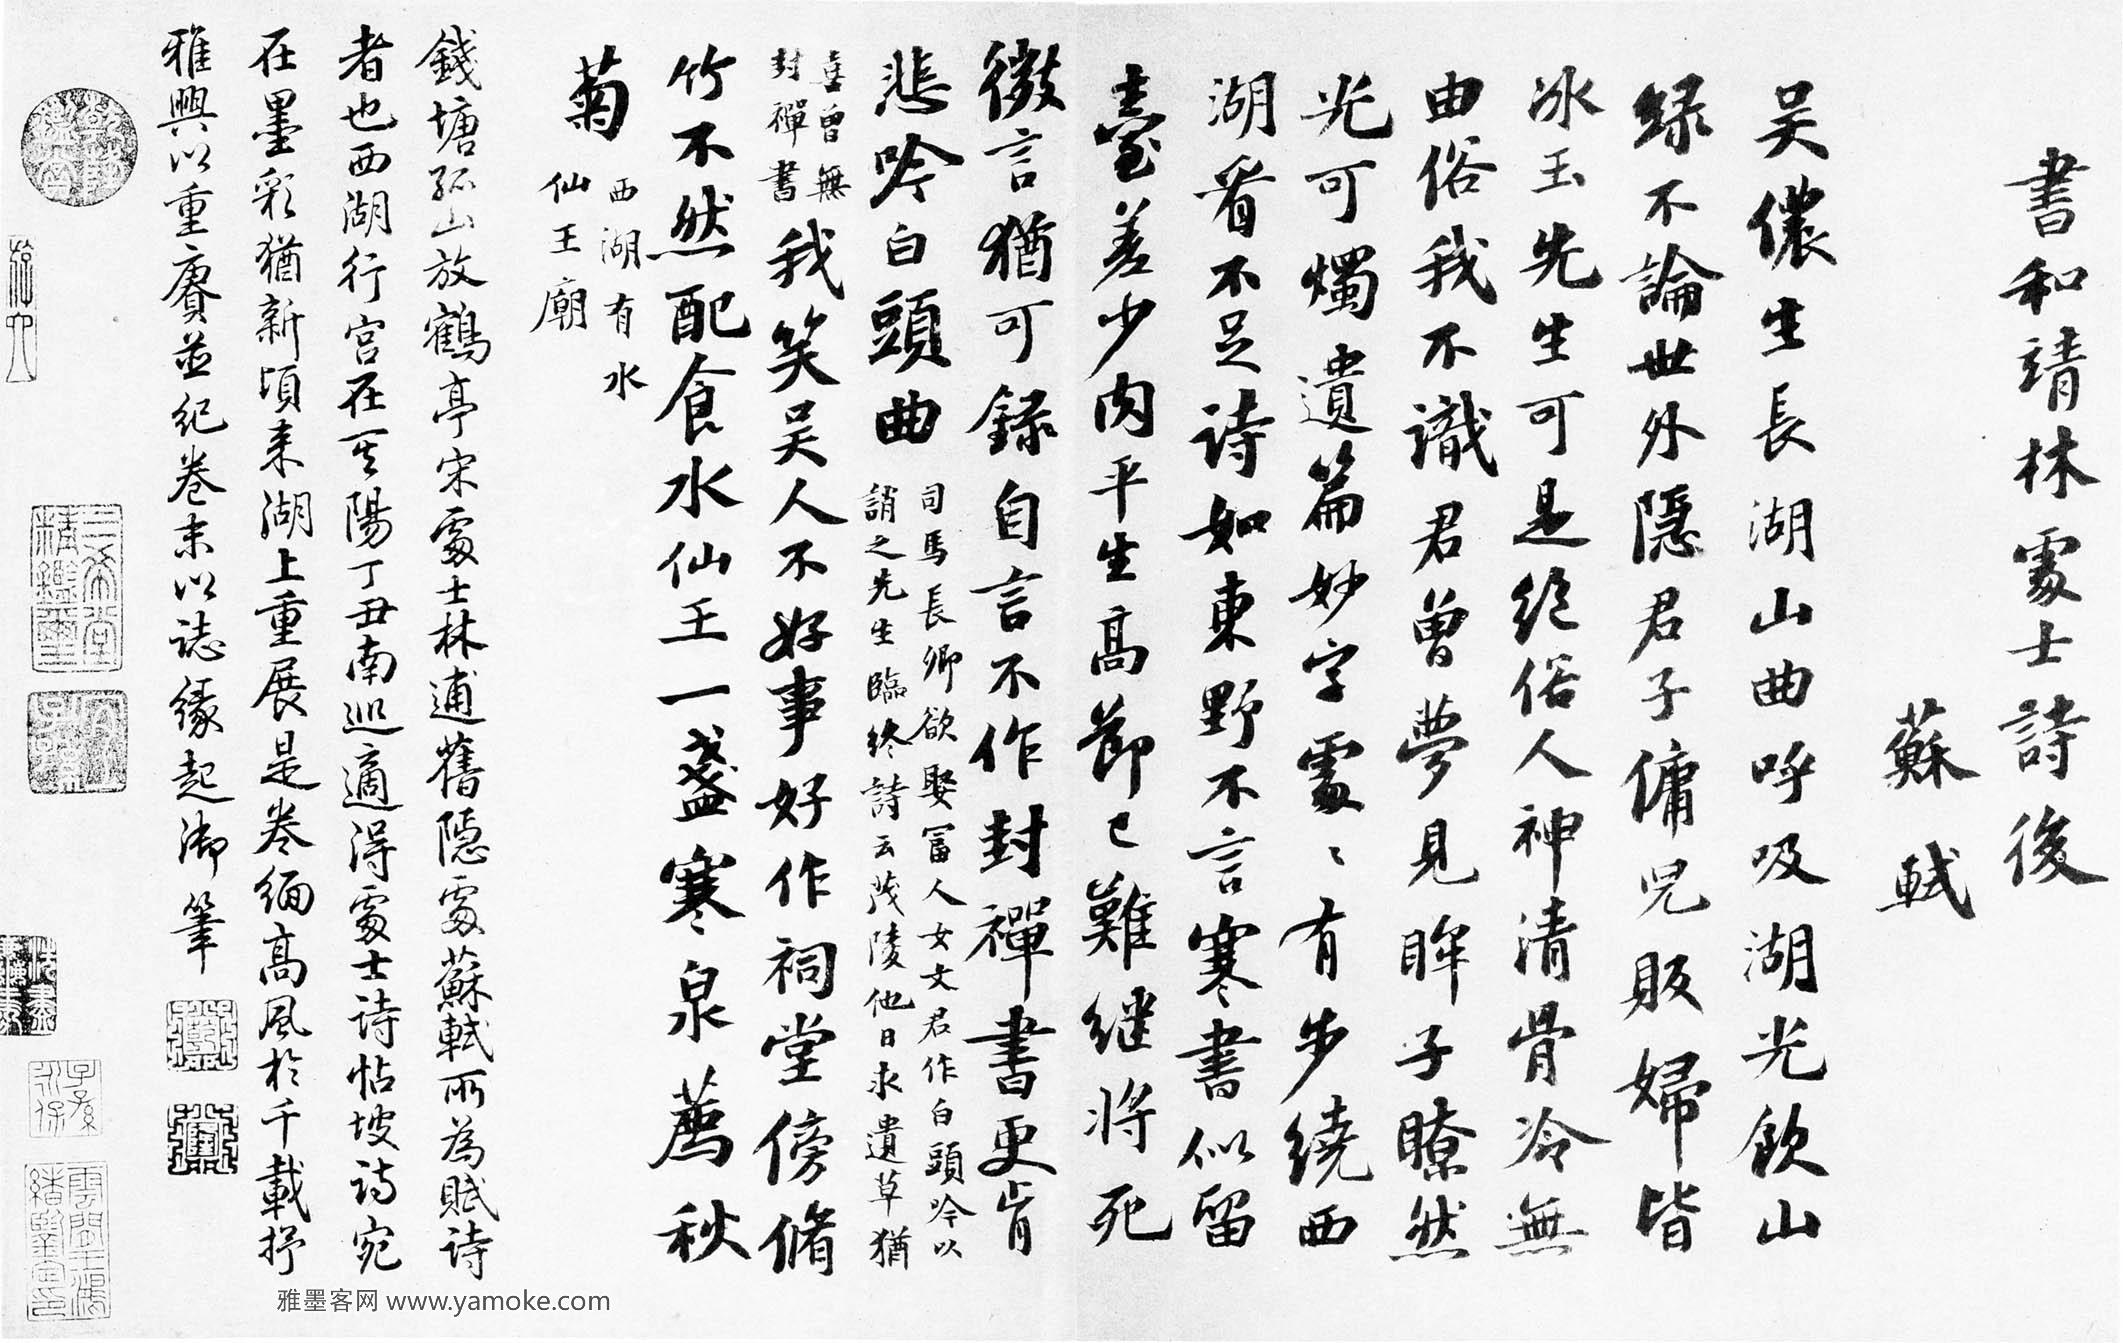 書和靖林處士詩後
蘇軾
吴儂生長湖山曲呼吸湖光飲山
緑不論世外隱君子傭兒販婦皆
冰玉先生可是絕俗人神清骨冷無
由俗我不識君曾夢見眸子瞭然
光可燭遺篇妙字處〻有步繞西
湖看不足詩如東野不言寒書似留
臺差少肉平生高節已難繼將死
微言猶可録自言不作封禪書更肯
悲吟白頭曲
司馬長卿欲娶富人女文君作白頭吟以
誚之先生臨終詩云茂陵他日求遺草猶
喜曾無
封禪書
我笑吴人不好事好作祠堂傍脩
竹不然配食水仙王一盞寒泉薦秋
菊
西湖有水
仙王廟
錢塘孤山放鶴亭宋處士林逋舊隱處蘇軾所為賦詩
者也西湖行宮在其陽丁丑南巡適得處士詩帖坡詩宛
在墨彩猶新頃來湖上重展是卷緬高風於千載抒
雅興以重賡並紀卷末以誌緣起御筆
三希堂
精鑑璽
宜子孫
子孫
永保
雅墨客网 www.yamoke.com